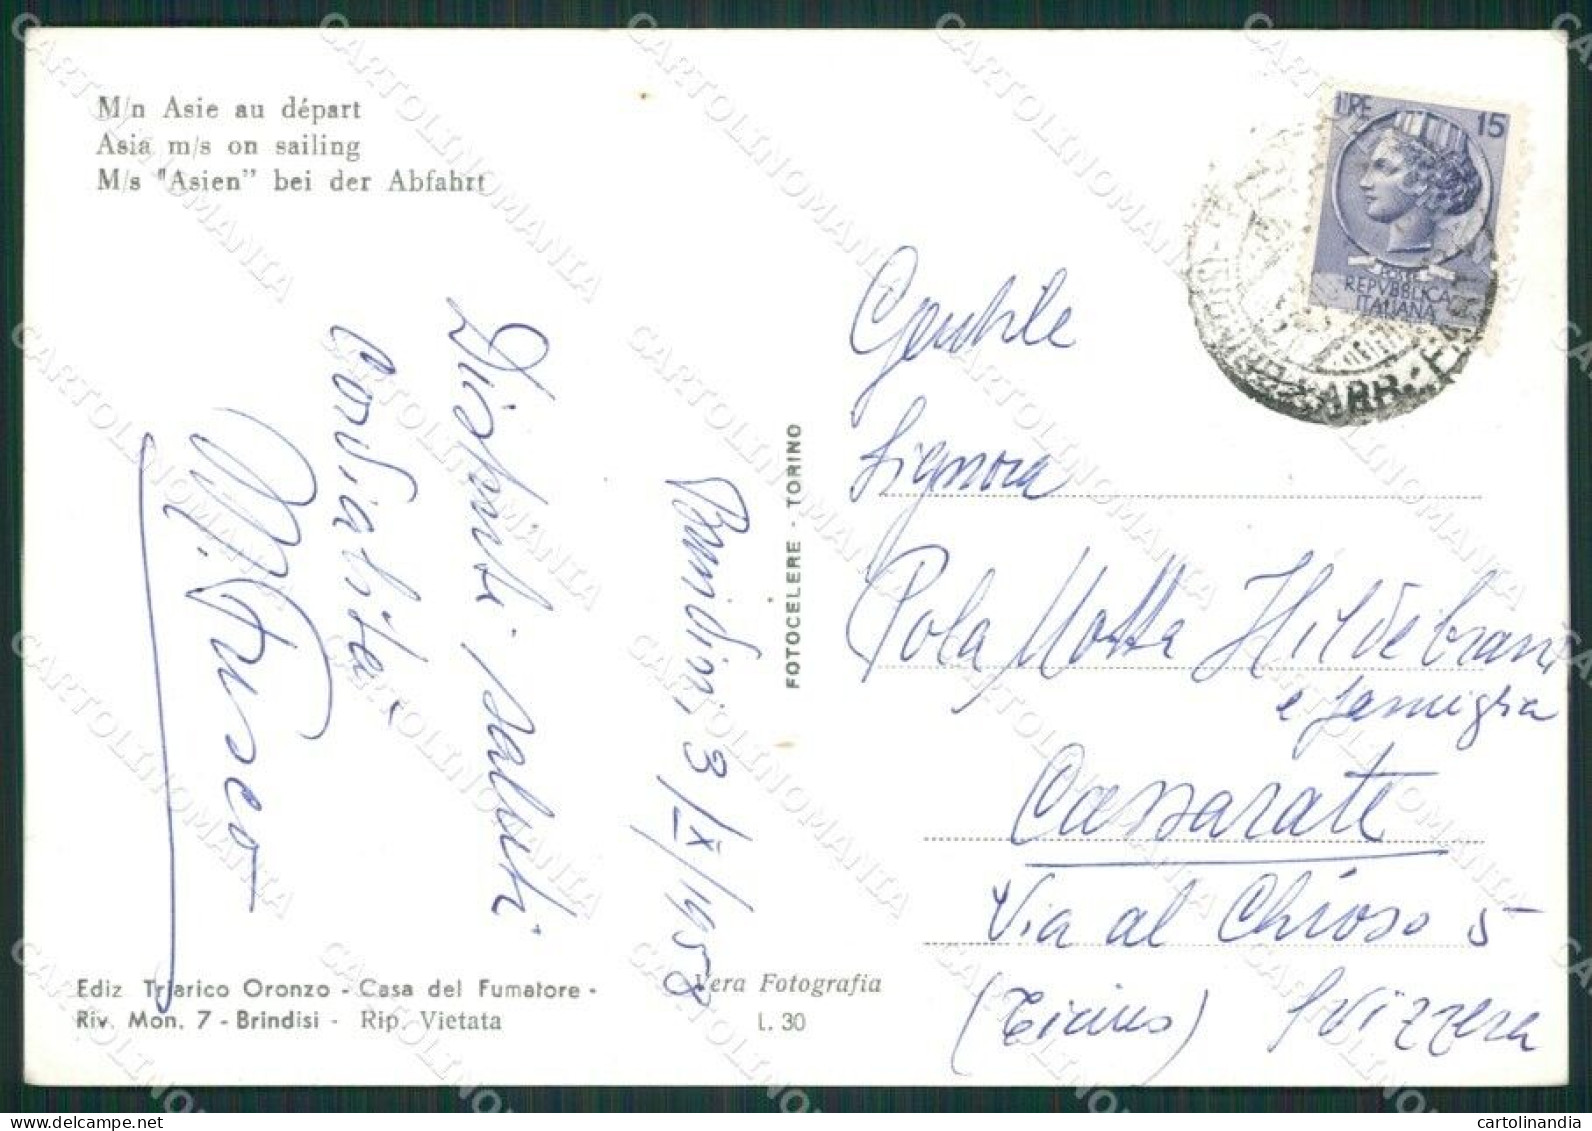 M/n Asie au départ
Asia m/s on sailing
M/s "Asien" bei der Abfahrt
LIRE 15
POSTE
REPVBBLICA
ITALIANA
ARR.
Gentile
Signora
Pola Motta Hildebrand
e famiglia
Cassarate
Via al Chioso 5
(Ticino) Svizzera
Brindisi, 3/IX/1958
Distinti saluti
cordialità
M.
FOTOCELERE - TORINO
Ediz Triarico Oronzo - Casa del Fumatore -
Riv. Mon. 7 - Brindisi - Rip. Vietata
Vera Fotografia
L. 30
CARTOLINOMANIA
cartolinandia